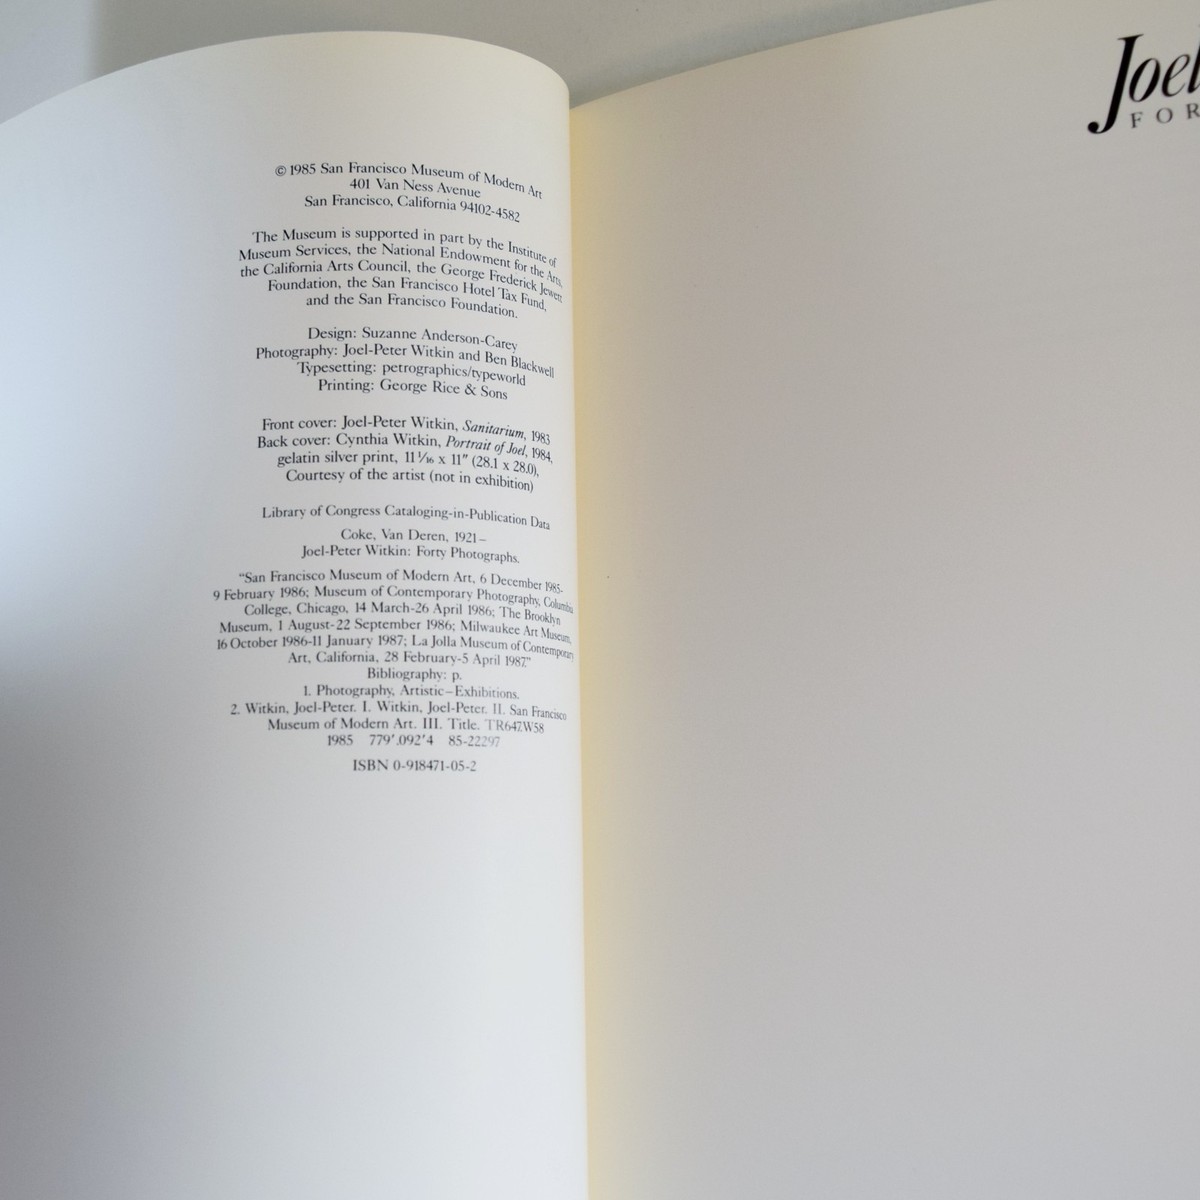 © 1985 San Francisco Museum of Modern Art
401 Van Ness Avenue
San Francisco, California 94102-4582
The Museum is supported in part by the Institute of
Museum Services, the National Endowment for the Arts,
the California Arts Council, the George Frederick Jewett
Foundation, the San Francisco Hotel Tax Fund,
and the San Francisco Foundation.
Design: Suzanne Anderson-Carey
Photography: Joel-Peter Witkin and Ben Blackwell
Typesetting: petrographics/typeworld
Printing: George Rice & Sons
Front cover: Joel-Peter Witkin, Sanitarium, 1983
Back cover: Cynthia Witkin, Portrait of Joel, 1984,
gelatin silver print, 11 1/16 x 11" (28.1 x 28.0),
Courtesy of the artist (not in exhibition)
Library of Congress Cataloging-in-Publication Data
Coke, Van Deren, 1921–
Joel-Peter Witkin: Forty Photographs.
“San Francisco Museum of Modern Art, 6 December 1985-
9 February 1986; Museum of Contemporary Photography, Columbia
College, Chicago, 14 March-26 April 1986; The Brooklyn
Museum, 1 August-22 September 1986; Milwaukee Art Museum,
16 October 1986-11 January 1987; La Jolla Museum of Contemporary
Art, California, 28 February-5 April 1987.”
Bibliography: p.
1. Photography, Artistic–Exhibitions.
2. Witkin, Joel-Peter. I. Witkin, Joel-Peter. II. San Francisco
Museum of Modern Art. III. Title. TR647.W58
1985 779'.092'4 85-22297
ISBN 0-918471-05-2
Joel
FOR